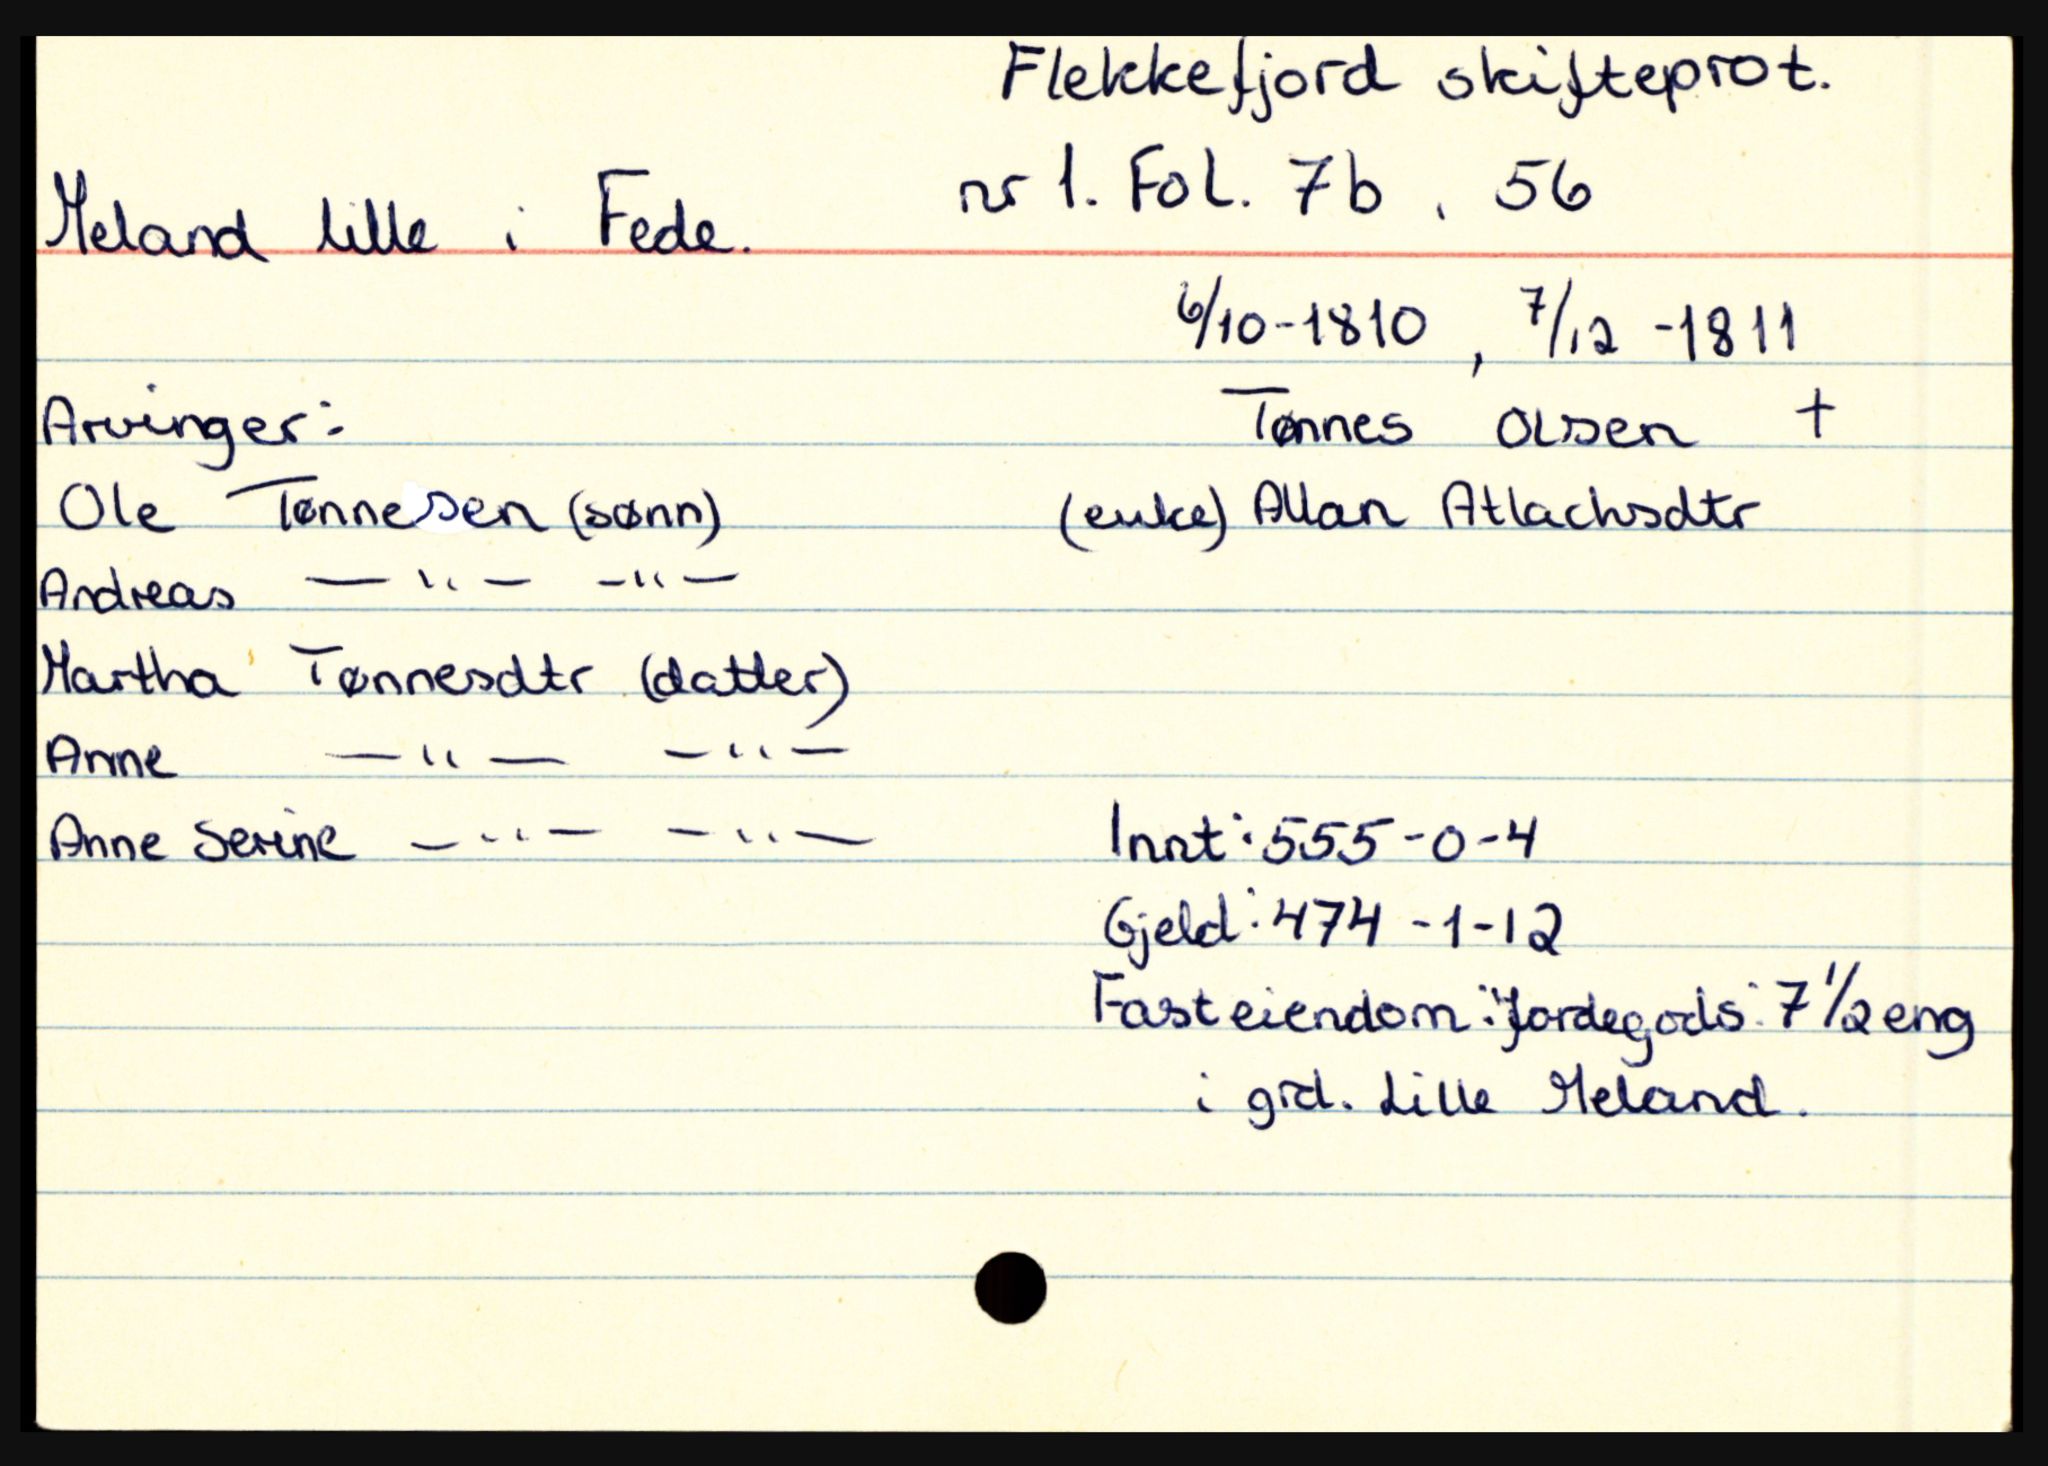 Flekkefjord skifteprot.
nr 1. Fol. 7b, 56
Meland lille i Fede.
6/10-1810, 7/12-1811
Arvinger:
Tønnes Olsen †
Ole Tønnesen (sønn)
(enke) Allan Atlachsdtr
Andreas —"— —"—
Martha Tønnesdtr (datter)
Anne —"— —"—
Anne Serine —"— —"—
Innt: 555-0-4
Gjeld: 474-1-12
Fast eiendom: "Jordegods: 7 1/2 eng
i grd. Lille Meland.